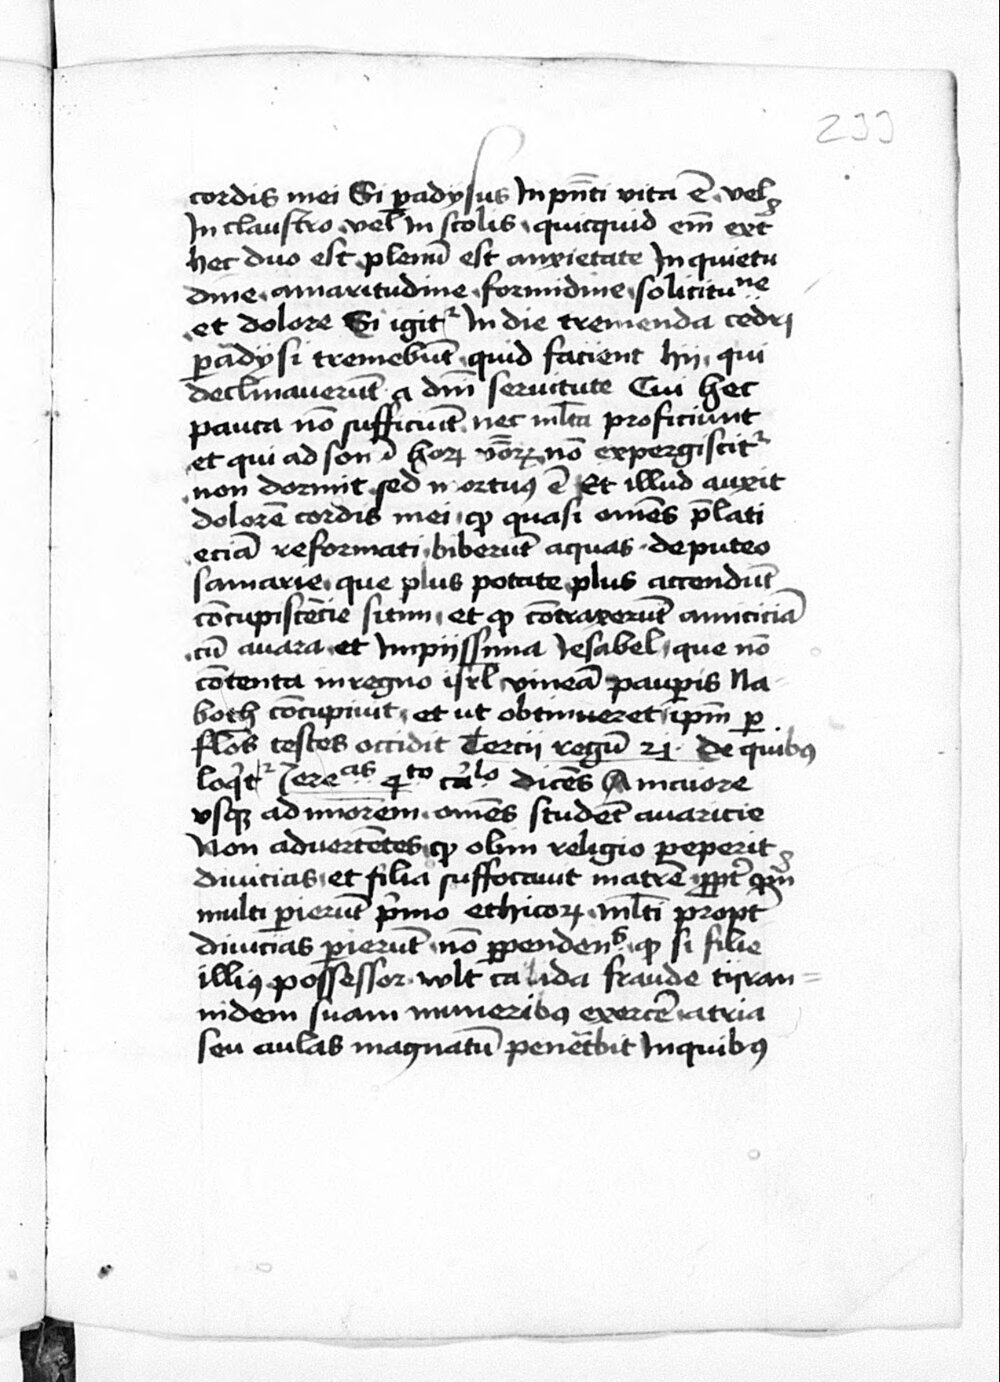 233
cordis mei Si ꝑadysus In pn̄ti vita ē vel
In claustro vel In scolis quicquid em̄ ext᷑
hec duo est plenū est anxietate Inquietu
dine amaritudine formidine solicituⁿᵉ
et dolore Si igit᷑ In die tremenda cedri
ꝑadysi tremebūt quid facient hii qui
declinauerūt a dn̄i seruitute Cui hec
pauca nō sufficiūt nec ml̄ta proficiunt
et qui ad son ī horꝝ v̄orꝝ nō expergiscit᷑
non dormit sed mortuꝰ ē Et illud auxit
dolorē cordis mei ꝙ quasi om̄es p̄lati
eciā reformati biberūt aquas de puteo
samarie que plus potate plus accendūt
cōcupiscēcie sitim et ꝙ cōtraxerūt amiciciā
cū auara et Impiissima Iesabel que nō
cōtenta in regno isrl̄ vineā pauꝑis Na
both cōcupiuit et ut obtineret ip̄m ꝑ
fl̄os testes occidit Tercii regū 21 De quibus
loqͥt᷑ Iereᶜⁱᵃˢ 4ᵗᵒ ca̓ˡᵒ dicēs A mīuore
vsqꝫ ad maiorem om̄es studēt auaricie
Non aduertētes ꝙ olim religio peperit
diuicias et filia suffocauit matrē ꝓpt᷑ qm̄
multi ꝑierūt pͥmo ethicorꝝ ml̄ti propt᷑
diuicias ꝑierūt nō ꝑpendenˢ ꝙ si filie
illiꝰ possessor wlt calida fraude tijran
nidem suam muneribꝰ exercē atria
seu aulas magnatū penet᷑bit In quibꝰ